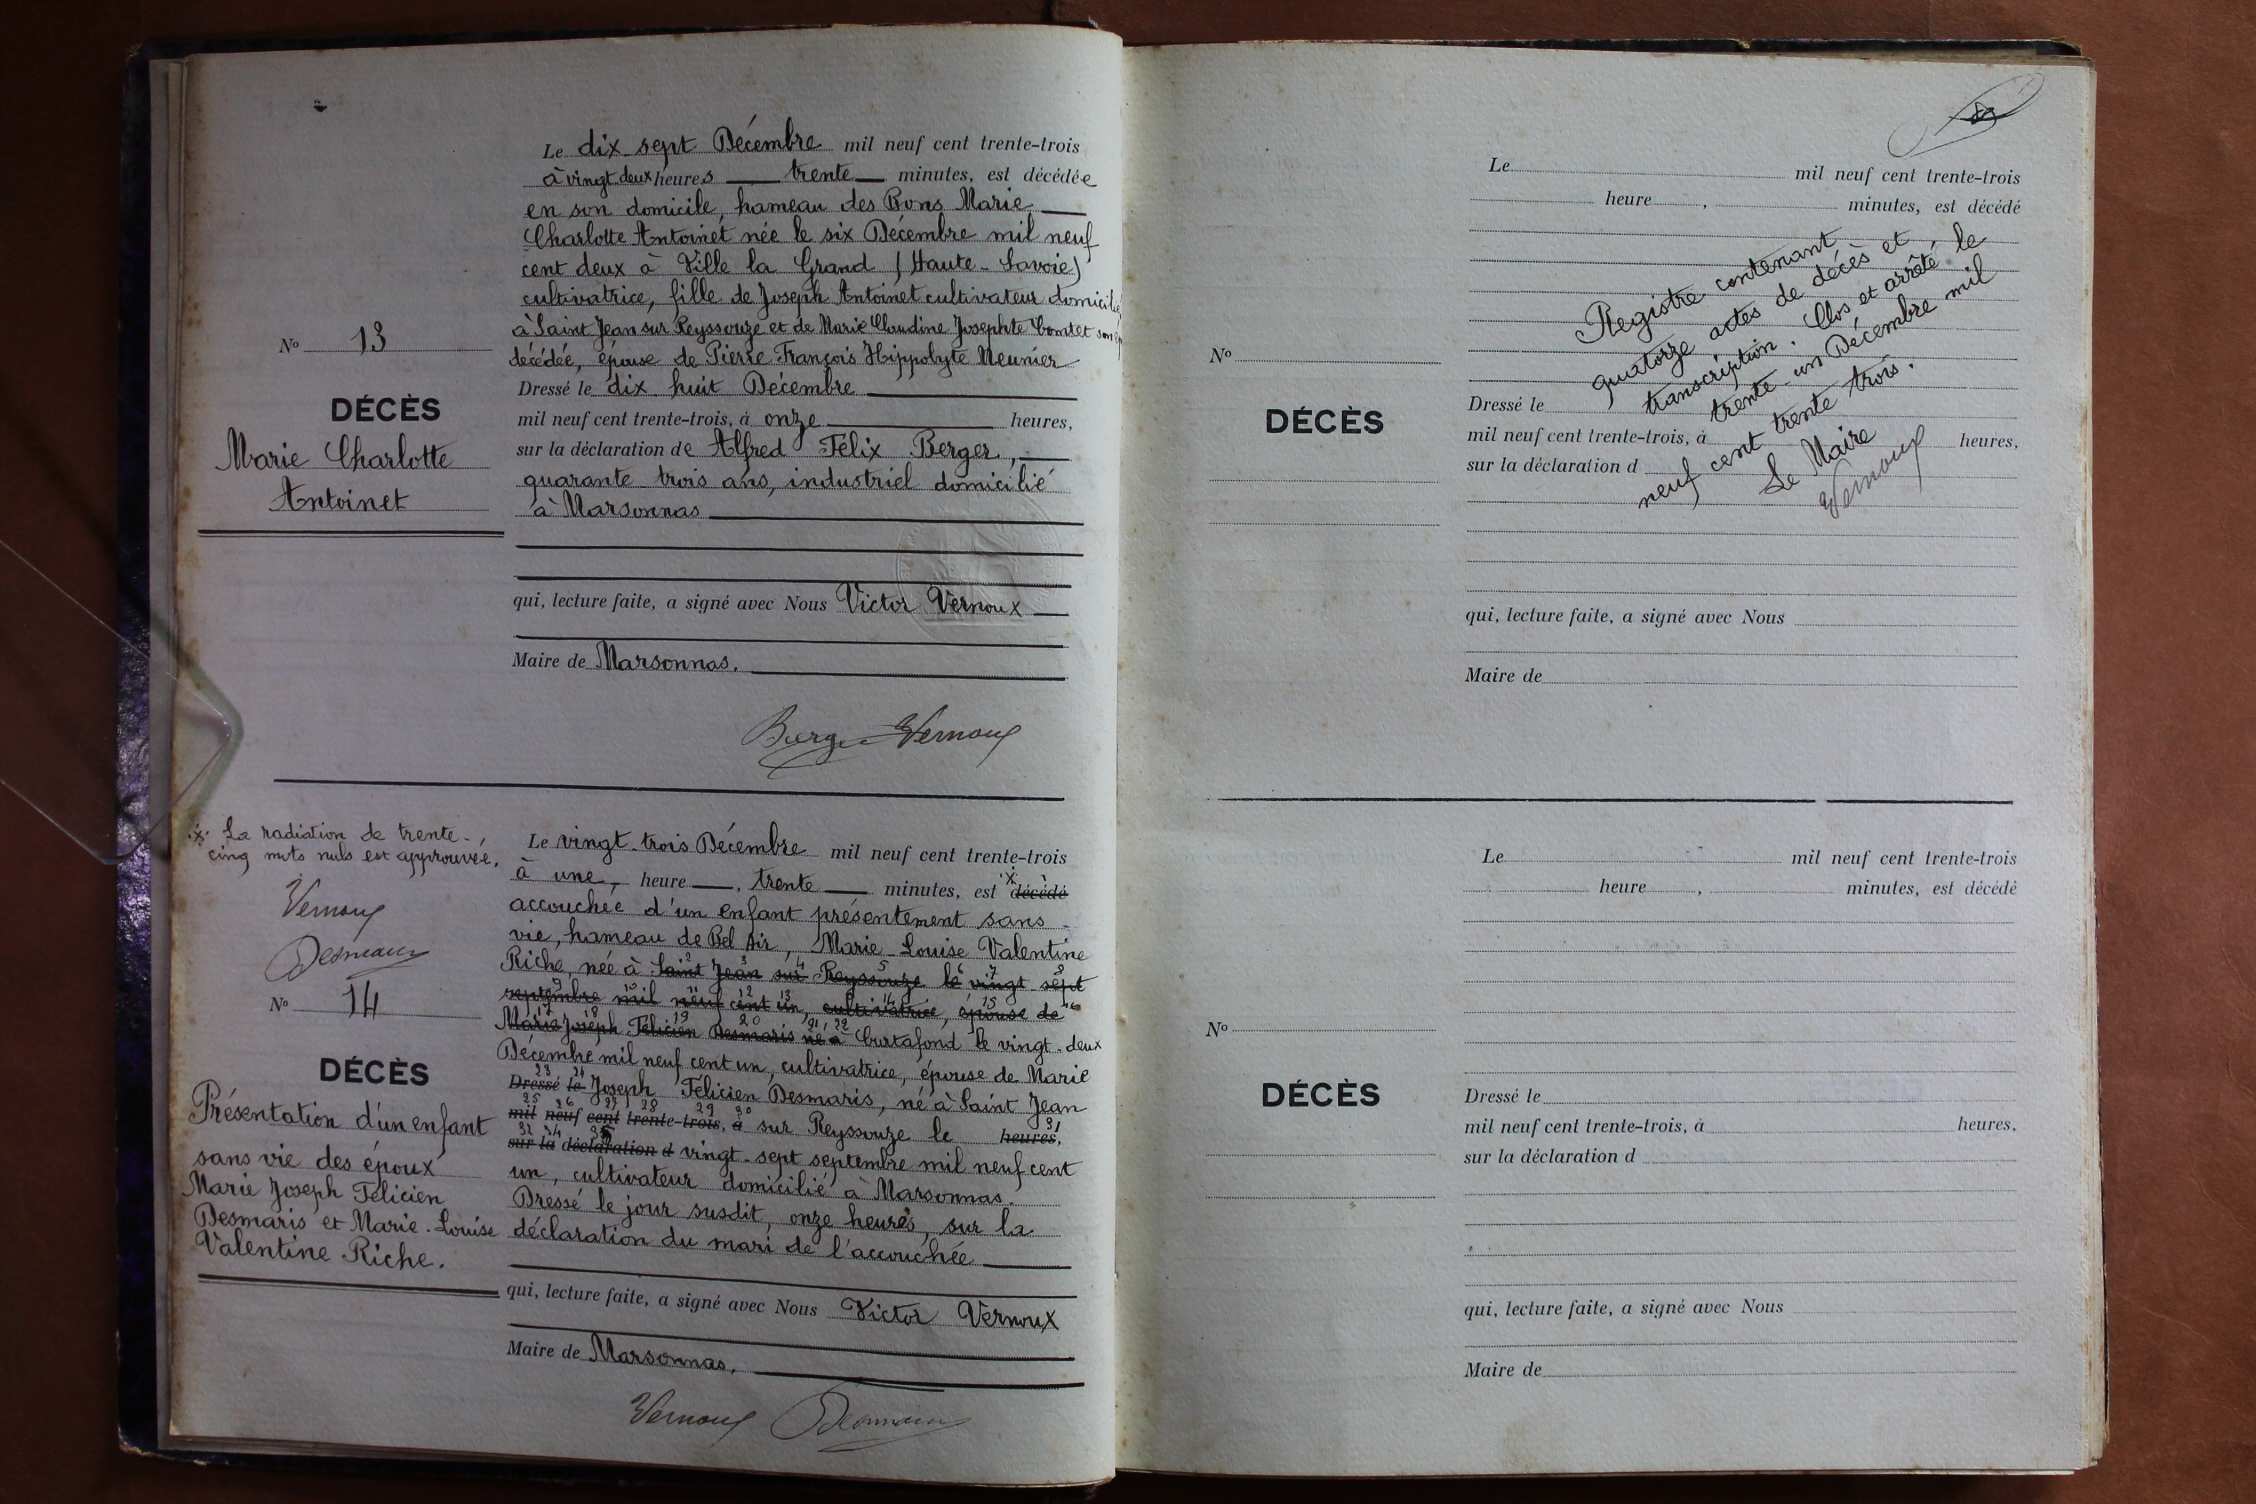 Le dix sept Décembre mil neuf cent trente-trois
à vingt deux heures trente minutes, est décédée
en son domicile, hameau des Bons Marie
Charlotte Antoinet née le six Décembre mil neuf
cent deux à Ville la Grand (Haute-Savoie)
cultivatrice, fille de Joseph Antoinet cultivateur domicilié
à Saint Jean sur Reyssouze et de Marie Claudine Josephte Comtet son
décédée, épouse de Pierre François Hippolyte Meunier
Dressé le dix huit Décembre
mil neuf cent trente-trois, à onze heures,
sur la déclaration de Alfred Félix Berger,
quarante trois ans, industriel domicilié
à Marsonnas
qui, lecture faite, a signé avec Nous Victor Vernoux
Maire de Marsonnas.
Berger Vernoux
No 13
DÉCÈS
Marie Charlotte
Antoinet
x La radiation de trente-
cinq mots nuls est approuvée.
Vernoux
Desmaris
No 14
DÉCÈS
Présentation d'un enfant
sans vie des époux
Marie Joseph Félicien
Desmaris et Marie-Louise
Valentine Riche.
Le vingt-trois Décembre mil neuf cent trente-trois
à une, heure, trente minutes, est x décédé
accouchée d'un enfant présentement sans
vie, hameau de Bel Air, Marie-Louise Valentine
Riche, née à Saint Jean sur Reyssouze le vingt sept
septembre mil neuf cent un, cultivatrice, épouse de
Marie Joseph Félicien Desmaris né à Curtafond le vingt-deux
Décembre mil neuf cent un, cultivatrice, épouse de Marie
Dressé le Joseph Félicien Desmaris, né à Saint Jean
mil neuf cent trente-trois, à sur Reyssouze le heures,
sur la déclaration d vingt-sept septembre mil neuf cent
un, cultivateur domicilié à Marsonnas.
Dressé le jour susdit, onze heures, sur la
déclaration du mari de l'accouchée
qui, lecture faite, a signé avec Nous Victor Vernoux
Maire de Marsonnas.
Vernoux Desmaris
Le mil neuf cent trente-trois
heure , minutes, est décédé
Registre contenant
quatorze actes de décès et
transcription. Clos et arrêté le
trente-un Décembre mil
neuf cent trente trois.
Le Maire
Vernoux
No
DÉCÈS
Dressé le
mil neuf cent trente-trois, à heures,
sur la déclaration d
qui, lecture faite, a signé avec Nous
Maire de
Le mil neuf cent trente-trois
heure , minutes, est décédé
No
DÉCÈS
Dressé le
mil neuf cent trente-trois, à heures,
sur la déclaration d
qui, lecture faite, a signé avec Nous
Maire de